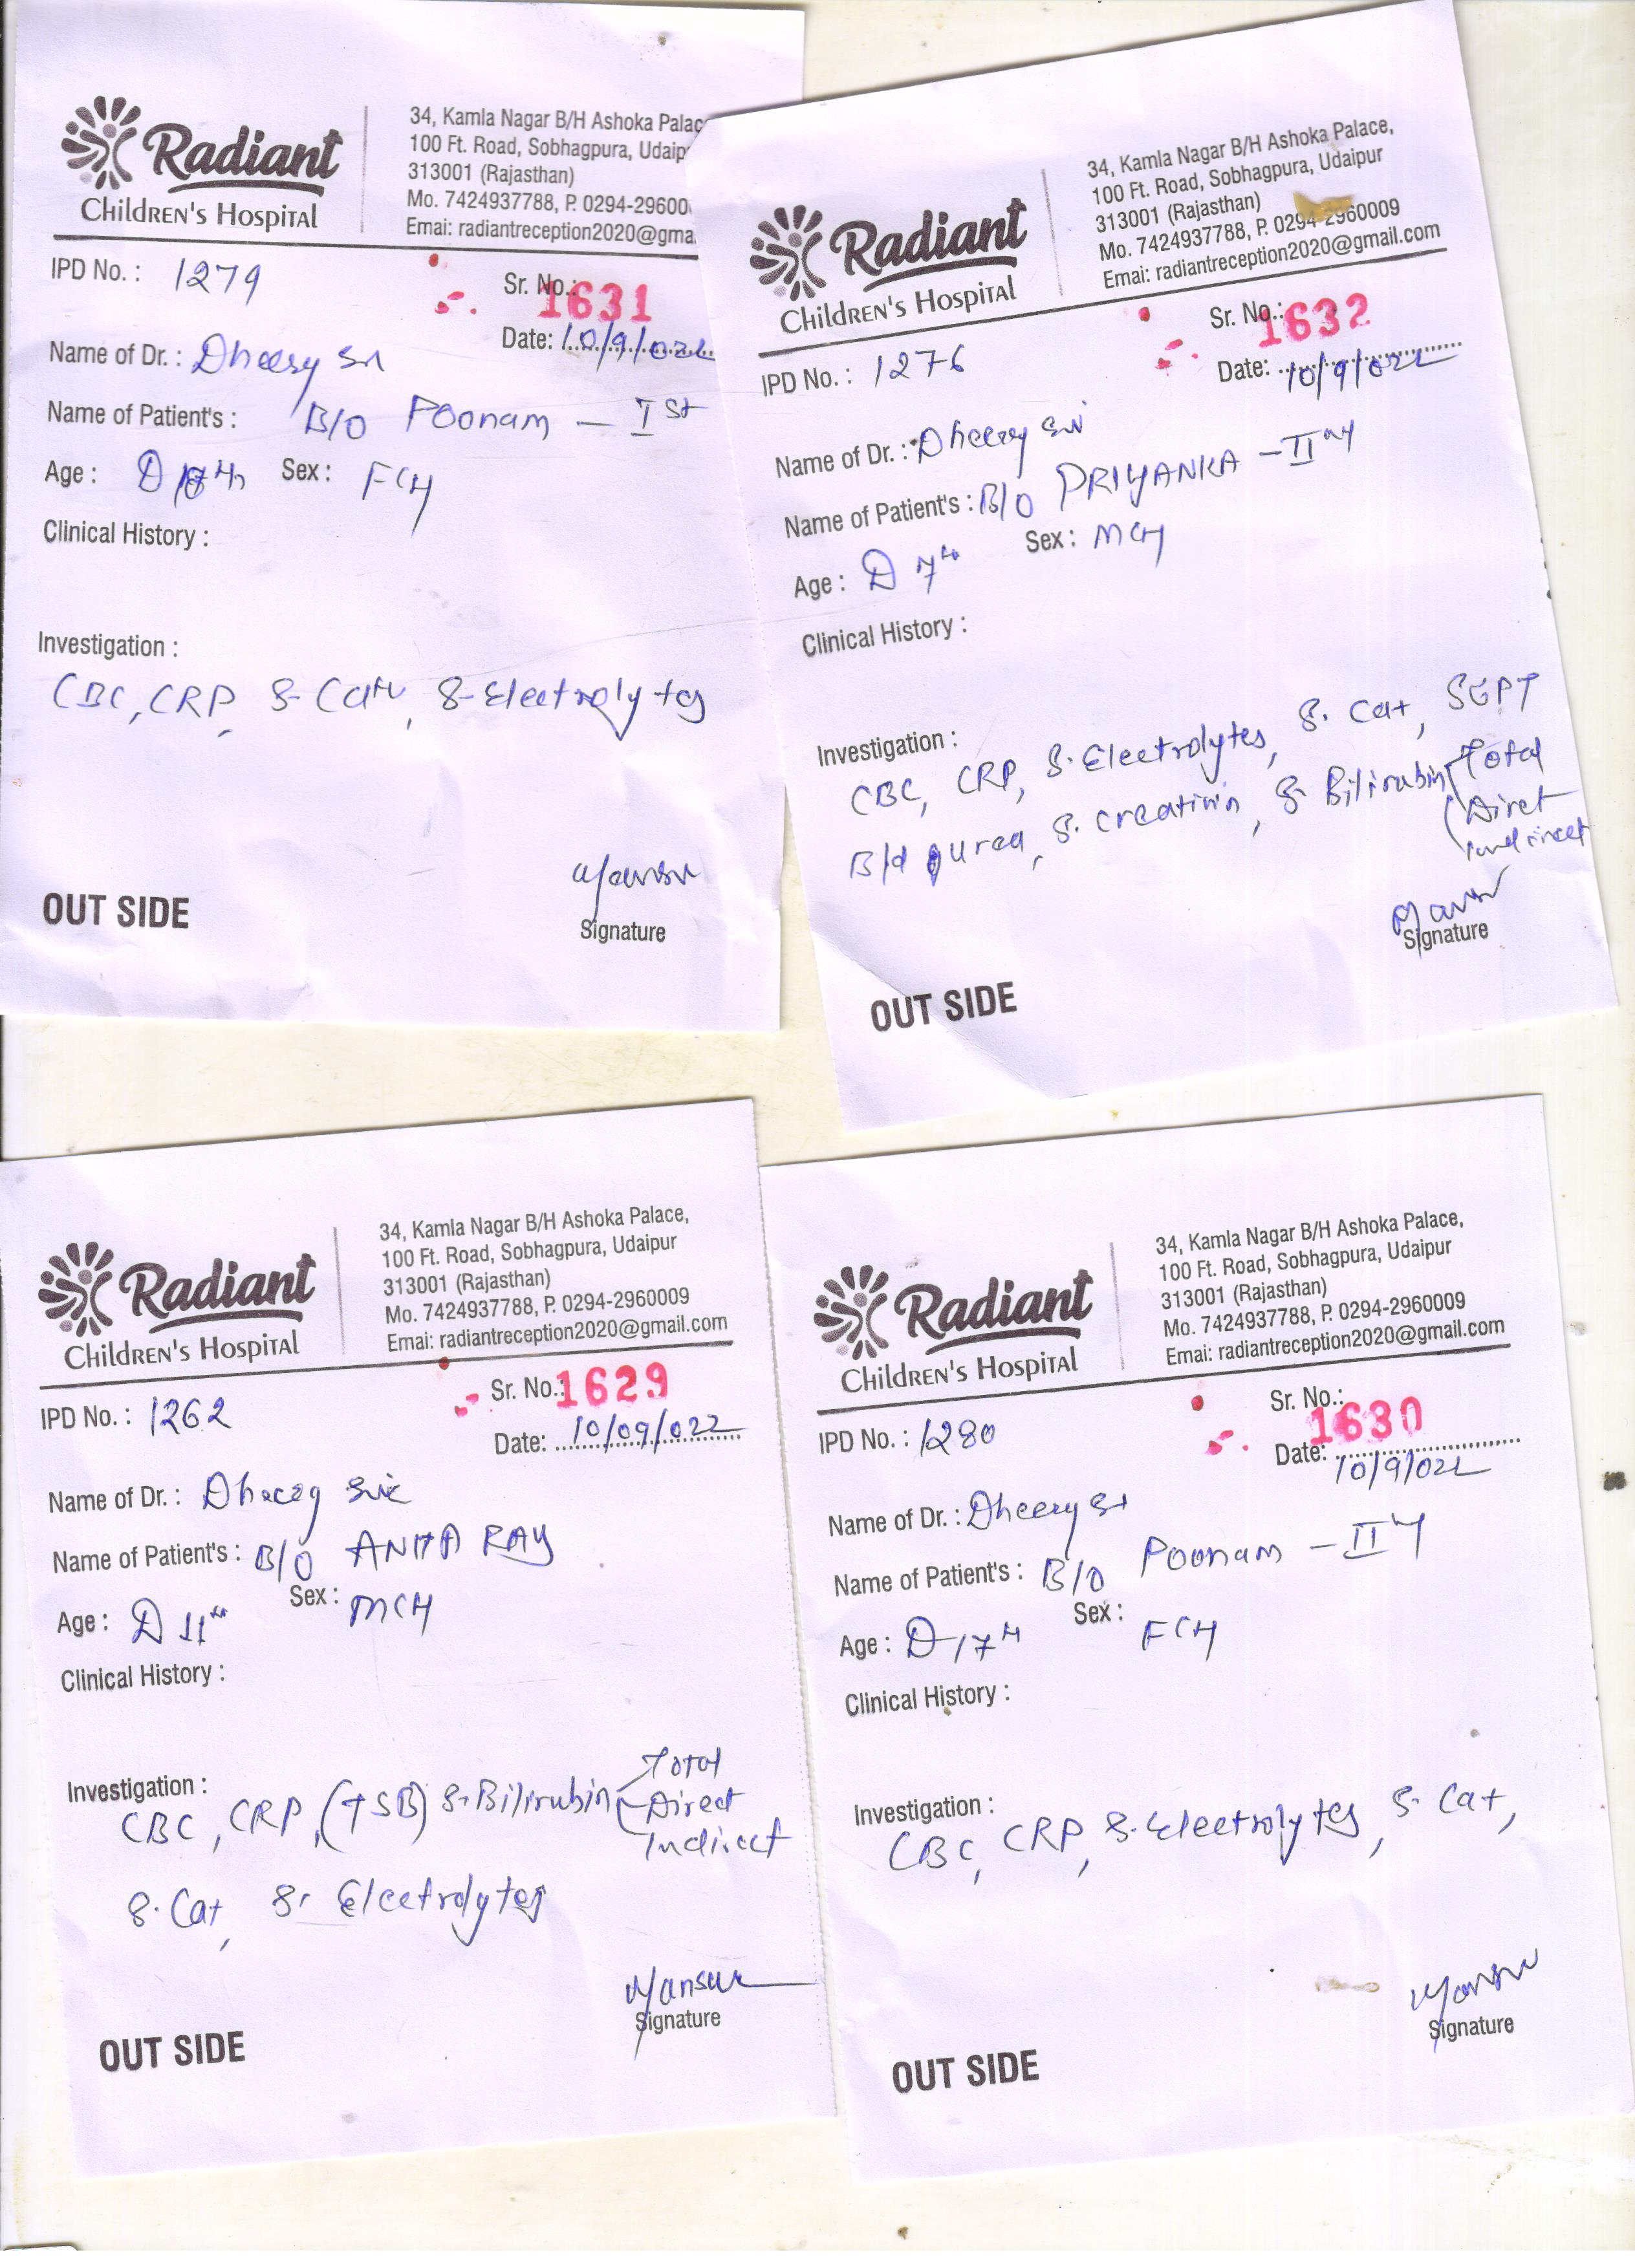 Radiant
Children's Hospital
34, Kamla Nagar B/H Ashoka Palac
100 Ft. Road, Sobhagpura, Udaip
313001 (Rajasthan)
Mo. 7424937788, P. 0294-29600
Emai: radiantreception2020@gma
IPD No. : 1279
Sr. No.: 1631
Date: 10/9/022
Name of Dr. : Dheeraj Sir
Name of Patient's : B/O Poonam – Ist
Age : D Sex : FCH
Clinical History :
Investigation :
CBC, CRP, S. , S-Electrolytes
OUT SIDE
Signature
Radiant
Children's Hospital
34, Kamla Nagar B/H Ashoka Palace,
100 Ft. Road, Sobhagpura, Udaipur
313001 (Rajasthan)
Mo. 7424937788, P. 0294-2960009
Emai: radiantreception2020@gmail.com
Sr. No.: 1632
IPD No. : 1276
Date: 10/9/022
Name of Dr. : Dheeraj Sir
Name of Patient's : B/O PRIYANKA – II
Age : D 7th Sex : MCH
Clinical History :
Investigation :
CBC, CRP, S. Electrolytes, S. Ca+, SGPT
Bld urea, S. creatinin, S. Bilirubin Total
Diret
Indirect
Signature
OUT SIDE
Radiant
Children's Hospital
34, Kamla Nagar B/H Ashoka Palace,
100 Ft. Road, Sobhagpura, Udaipur
313001 (Rajasthan)
Mo. 7424937788, P. 0294-2960009
Emai: radiantreception2020@gmail.com
IPD No. : 1262
Sr. No.: 1629
Date: 10/09/022
Name of Dr. : Dheeraj Sir
Name of Patient's : B/O ANITA RAY
Age : D 11th Sex : MCH
Clinical History :
Investigation :
CBC, CRP, (TSB) S. Bilirubin Total
Direct
Indirect
S. Ca+, S. Electrolytes
Mansur
Signature
OUT SIDE
Radiant
Children's Hospital
34, Kamla Nagar B/H Ashoka Palace,
100 Ft. Road, Sobhagpura, Udaipur
313001 (Rajasthan)
Mo. 7424937788, P. 0294-2960009
Emai: radiantreception2020@gmail.com
Sr. No.: 1630
IPD No. : 1280
Date: 10/9/022
Name of Dr. : Dheeraj Sir
Name of Patient's : B/O Poonam – II
Age : D 17th Sex : FCH
Clinical History :
Investigation :
CBC, CRP, S. Electrolytes, S. Ca+,
Signature
OUT SIDE